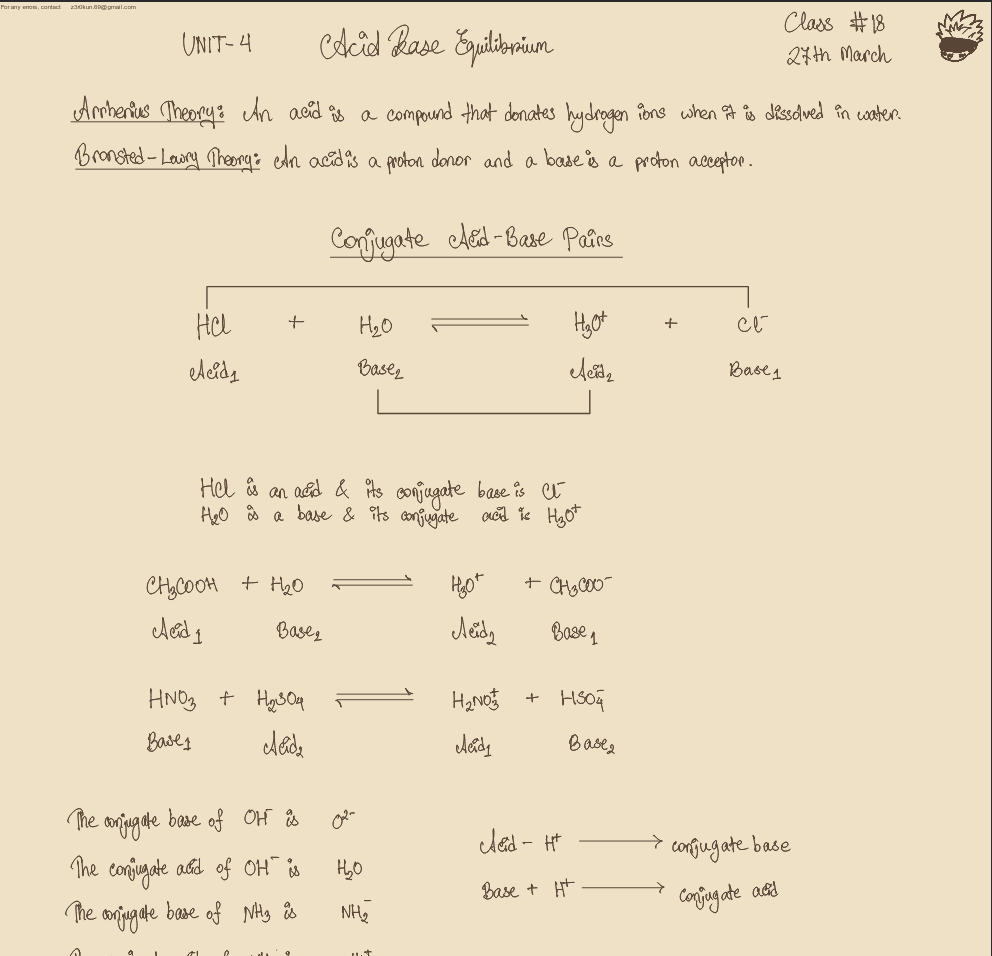 For any errors, contact z3r0kun.69@gmail.com
UNIT-4 Acid Base Equilibrium Class #18
27th March
Arrhenius Theory: An acid is a compound that donates hydrogen ions when it is dissolved in water.
Bronsted-Lowry Theory: An acid is a proton donor and a base is a proton acceptor.
Conjugate Acid-Base Pairs
HCl + H₂O ⇌ H₃O⁺ + Cl⁻
Acid₁ Base₂ Acid₂ Base₁
HCl is an acid & its conjugate base is Cl⁻
H₂O is a base & its conjugate acid is H₃O⁺
CH₃COOH + H₂O ⇌ H₃O⁺ + CH₃COO⁻
Acid₁ Base₂ Acid₂ Base₁
HNO₃ + H₂SO₄ ⇌ H₂NO₃⁺ + HSO₄⁻
Base₁ Acid₂ Acid₁ Base₂
The conjugate base of OH⁻ is O²⁻
Acid - H⁺ → conjugate base
The conjugate acid of OH⁻ is H₂O
Base + H⁺ → conjugate acid
The conjugate base of NH₃ is NH₂⁻